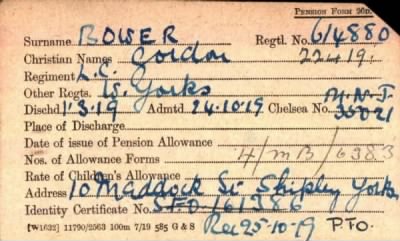 PENSION FORM 20D.
Surname BOWER Regtl. No. 614880
Christian Names Gordon 22419.
Regiment L.C.
Other Regts. W. Yorks M.N.J.
Dischd 1·3·19 Admtd 24.10.19 Chelsea No.
Place of Discharge
Date of issue of Pension Allowance
Nos. of Allowance Forms 4/MB/6383
Rate of Children's Allowance
Address 10 Maddock St. Shipley Yorks
Identity Certificate No. S.F.O 161386
[W1632] 11790/2563 100m 7/19 585 G & S Rec 25-10-19 P.T.O.